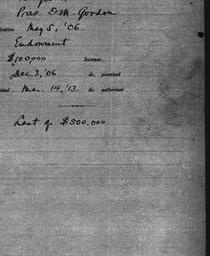 Pres. D.M. Gordon
May 5, '06.
Endowment
$100,000 Increase
Dec 3, '06 do. promised
Mar. 14, '13. do. authorized
Last of $500,000